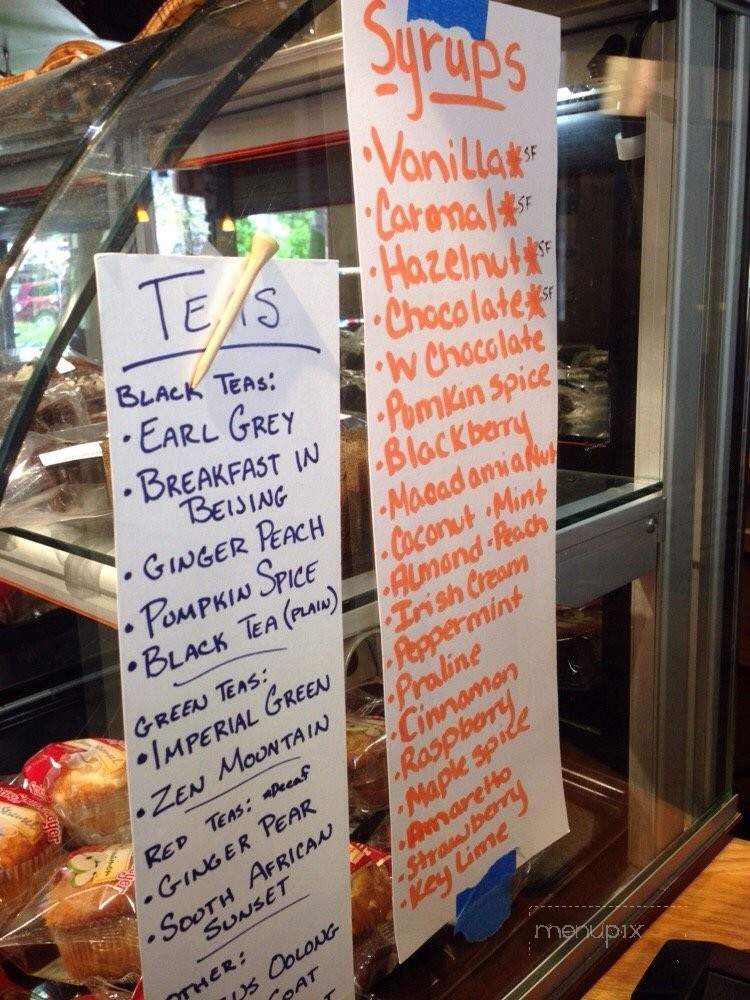 TEAS
BLACK TEAS:
• EARL GREY
• BREAKFAST IN
BEIJING
• GINGER PEACH
• PUMPKIN SPICE
• BLACK TEA (PLAIN)
GREEN TEAS:
• IMPERIAL GREEN
• ZEN MOUNTAIN
RED TEAS: *Decaf
• GINGER PEAR
• SOUTH AFRICAN
SUNSET
OTHER:
OOLONG
Syrups
• Vanilla* SF
• Carmal* SF
• Hazelnut* SF
• Chocolate* SF
• W Chocolate
• Pumkin Spice
• Blackberry
• Macadamia Nut
• Coconut • Mint
• Almond • Peach
• Irish Cream
• Peppermint
• Praline
• Cinnamon
• Raspberry
• Maple spice
• Amaretto
• Strawberry
• Key Lime
menupix